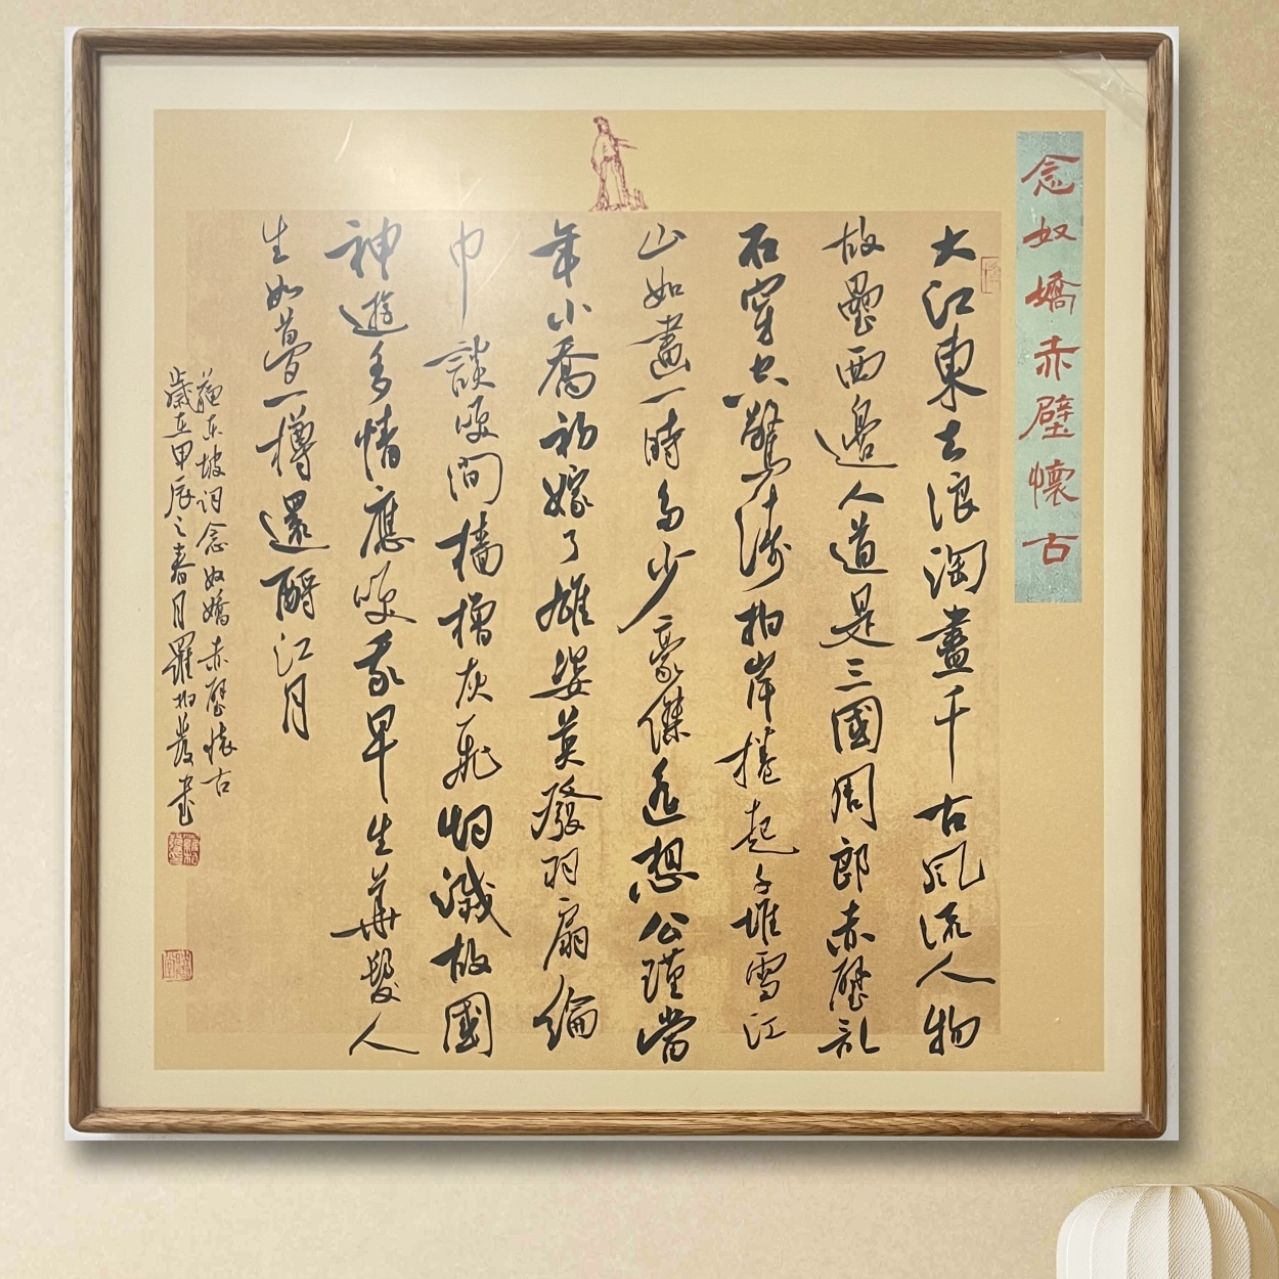 念奴嬌赤壁懷古
大江東去浪淘盡千古風流人物
故壘西邊人道是三國周郎赤壁乱
石穿空驚濤拍岸捲起千堆雪江
山如畫一時多少豪傑遙想公瑾當
年小喬初嫁了雄姿英發羽扇綸
巾談笑間檣櫓灰飛烟滅故國
神遊多情應笑我早生華髮人
生如夢一樽還酹江月
蘇東坡詞念奴嬌赤壁懷古
歲在甲辰之春月羅書